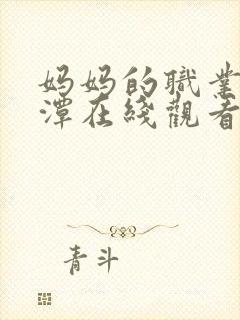 妈妈的職業
潭在綫觀看
青斗